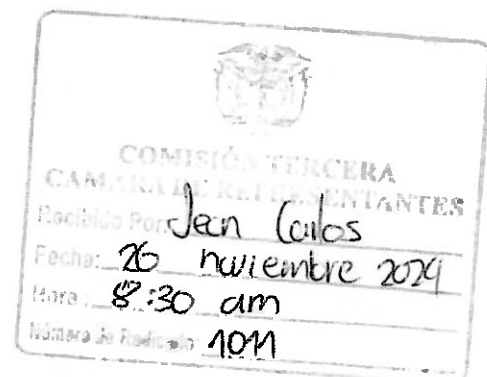 COMISIÓN TERCERA
CAMARA DE REPRESENTANTES
Recibido Por: Jean Carlos
Fecha: 26 noviembre 2024
Hora: 8:30 am
Número de Radicado: 1011